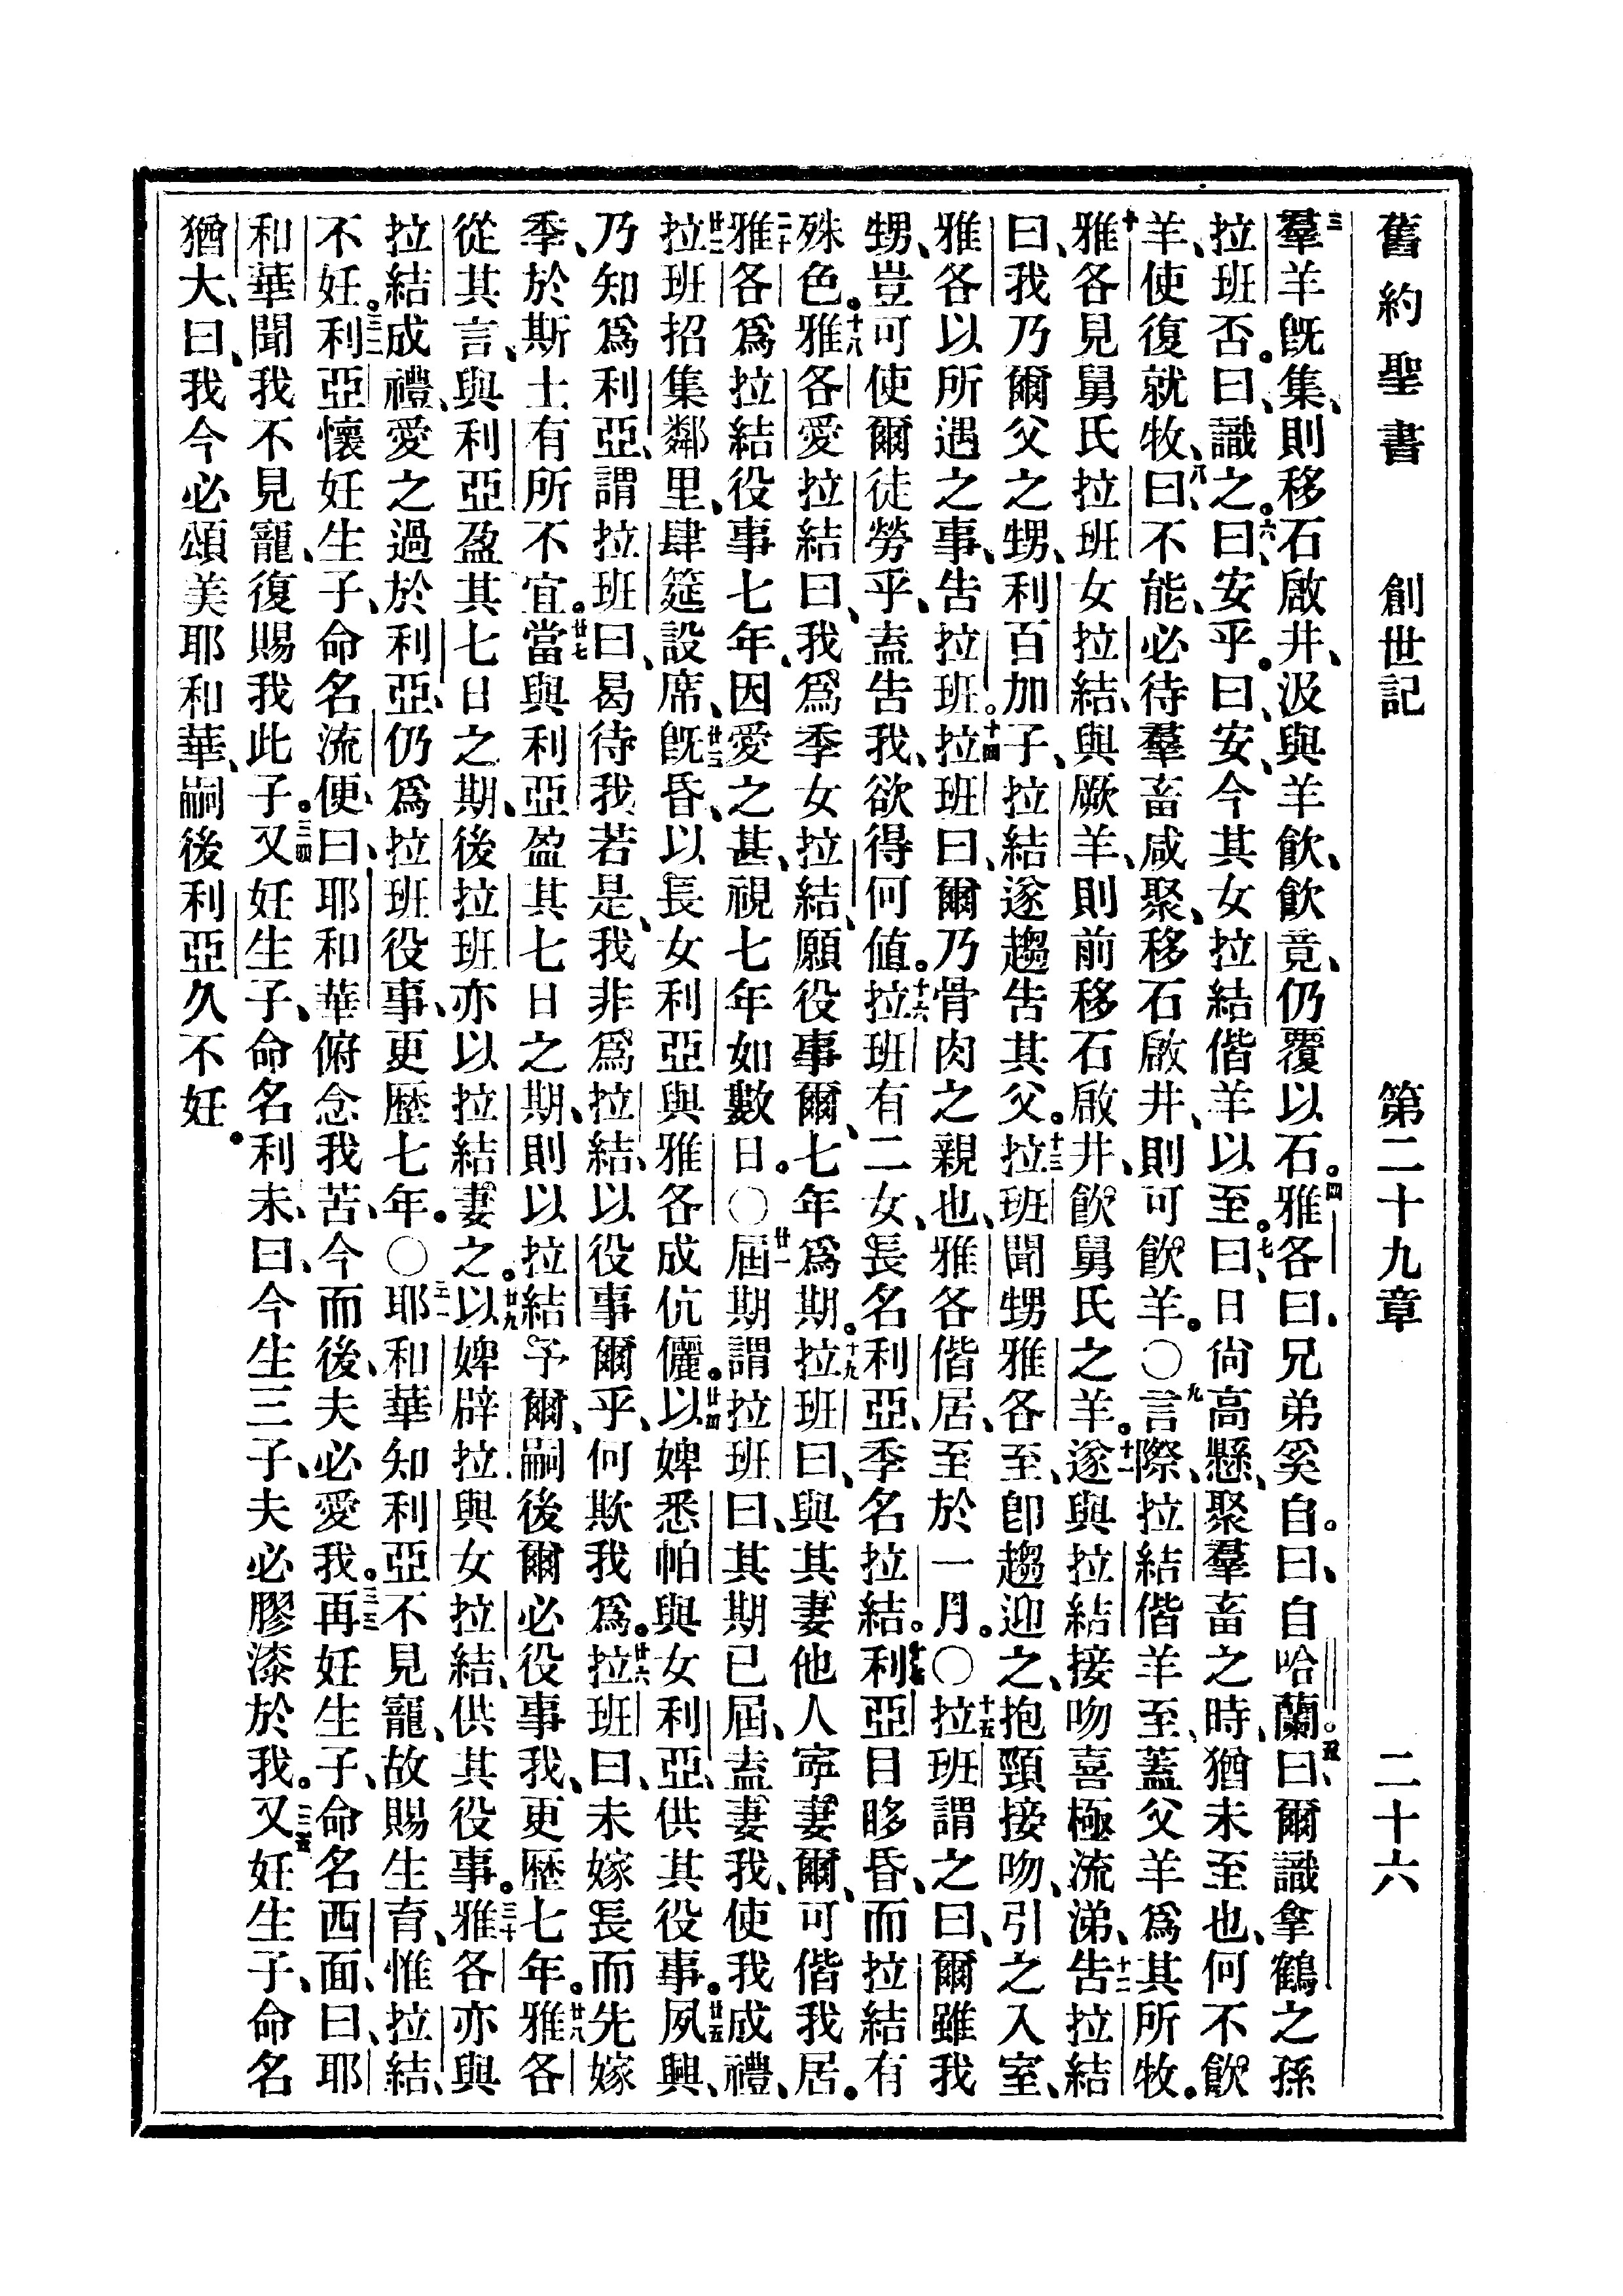 舊約聖書 創世記 第二十九章 二十六
三羣羊旣集、則移石啟井、汲與羊飲、飲竟、仍覆以石。四雅各曰、兄弟奚自。曰、自哈蘭。五曰、爾識拿鶴之孫
拉班否。曰、識之。六曰、安乎。曰、安、今其女拉結偕羊以至。七曰、日尙高懸、聚羣畜之時、猶未至也、何不飲
羊、使復就牧。八曰、不能、必待羣畜咸聚、移石啟井、則可飲羊。〇九言際、拉結偕羊至、蓋父羊爲其所牧。
十雅各見舅氏拉班女拉結、與厥羊、則前移石啟井、飲舅氏之羊。十一遂與拉結接吻喜極流涕、十二告拉結
曰、我乃爾父之甥、利百加子、拉結遂趨告其父。十三拉班聞甥雅各至、卽趨迎之、抱頸接吻、引之入室、
雅各以所遇之事、告拉班。十四拉班曰、爾乃骨肉之親也、雅各偕居、至於一月。〇十五拉班謂之曰、爾雖我
甥、豈可使爾徒勞乎、盍告我、欲得何値。十六拉班有二女、長名利亞、季名拉結。十七利亞目眵昏、而拉結有
殊色。十八雅各愛拉結曰、我爲季女拉結、願役事爾、七年爲期。十九拉班曰、與其妻他人寧妻爾、可偕我居。
二十雅各爲拉結役事七年、因愛之甚、視七年如數日。〇廿一屆期謂拉班曰、其期已屆、盍妻我、使我成禮、
廿二拉班招集鄰里、肆筵設席、廿三旣昏、以長女利亞與雅各成伉儷。廿四以婢悉帕與女利亞、供其役事。廿五夙興、
乃知爲利亞、謂拉班曰、曷待我若是、我非爲拉結、以役事爾乎、何欺我爲。廿六拉班曰、未嫁長而先嫁
季、於斯土有所不宜。廿七當與利亞盈其七日之期、則以拉結予爾、嗣後爾必役事我、更歷七年。廿八雅各
從其言、與利亞盈其七日之期、後拉班亦以拉結妻之。廿九以婢辟拉、與女拉結、供其役事。三十雅各亦與
拉結成禮、愛之過於利亞、仍爲拉班役事、更歷七年。〇三一耶和華知利亞不見寵、故賜生育、惟拉結、
不妊。三二利亞懷妊生子、命名流便、曰、耶和華俯念我苦、今而後、夫必愛我。三三再妊生子、命名西面、曰、耶
和華聞我不見寵、復賜我此子。三四又妊生子、命名利未、曰、今生三子、夫必膠漆於我。三五又妊生子、命名
猶大、曰、我今必頌美耶和華、嗣後利亞久不妊。